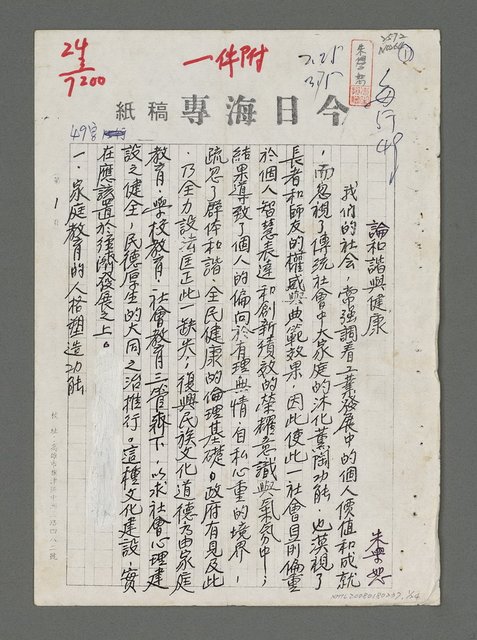 24
7200
一件附
7.25
375
2572
①
今日海專稿紙
49宮
每行49
論和諧與健康
朱學恕
我們的社會,常強調著工業發展中的個人價值和成就
,而忽視了傳統社會中大家庭的沐化薰陶功能,也漠視了
長者和師友的權威與典範效果,因此使此一社會目前偏重
於個人智慧表達和創新積效的榮耀意識與氣氛中;
結果導致了個人的偏向於有理無情,自私心重的境界,
疏忽了群体和諧,全民健康的倫理基礎。政府有見及此
,乃全力設法匡正此一缺失;復興民族文化道德乃由家庭
教育,學校教育,社會教育三管齊下,以求社會心理建
設之健全,民德厚生的大同之治推行。這種文化建設,實
在應該置於經濟發展之上。
一、家庭教育的人格塑造功能
第 1 頁
NMTL20080180207, 1/24